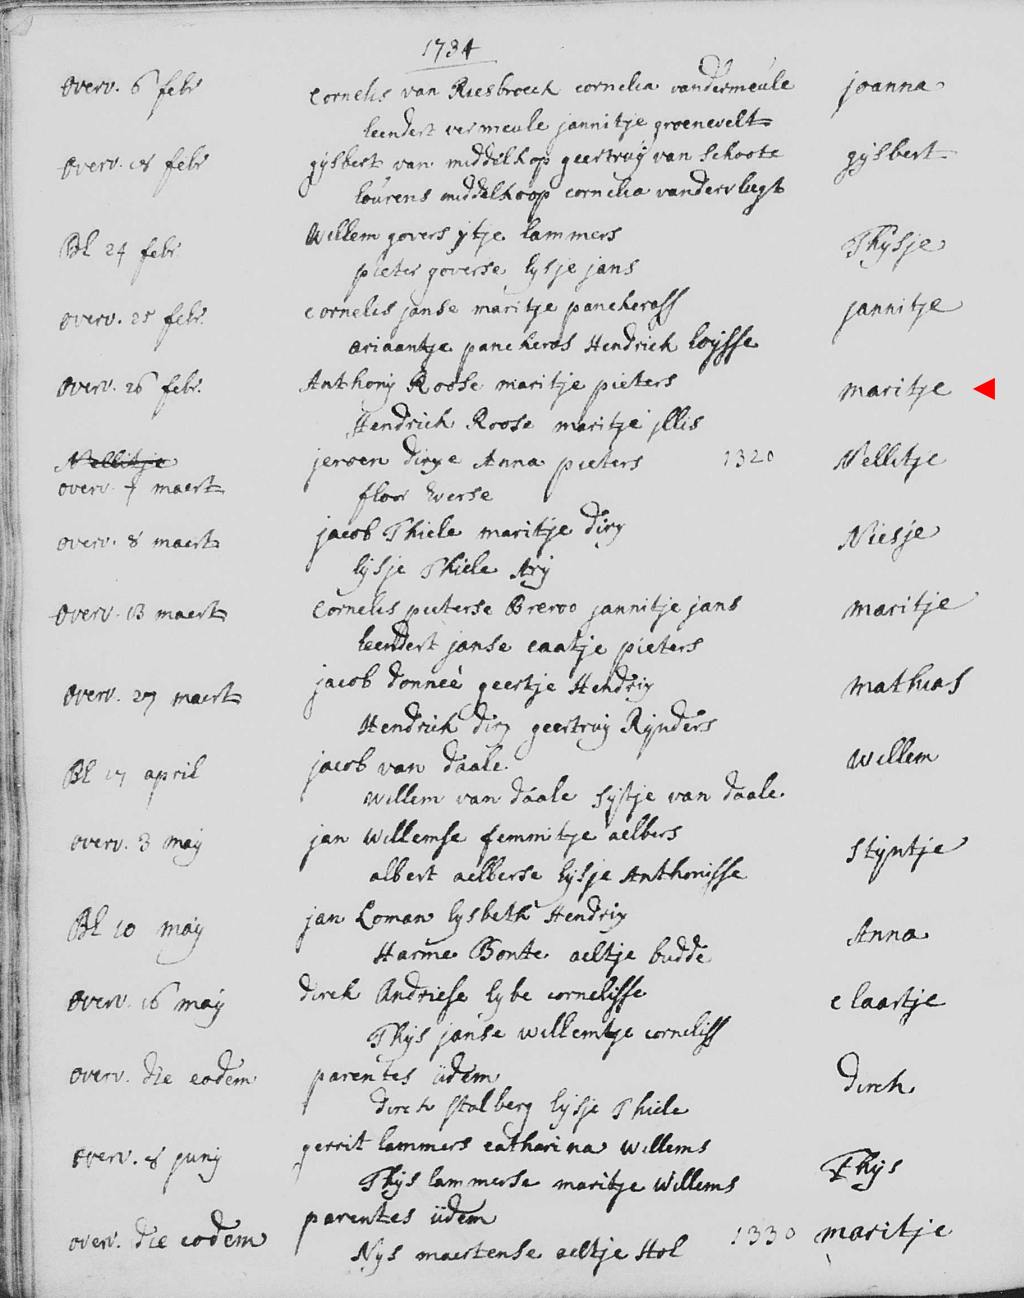 1734
overv. 6 febr cornelis van Riesbroeck cornelia vandermeule joanna
leendert vermeule jannitje groenevelt
overv. 18 febr gijsbert van middelhop geertruij van schoote gijsbert
lourens middelhoop cornelia vandervliegt
Bl 24 febr. Willem govers ijtje lammers Thijsje
pieter goverse lijsje jans
overv. 25 febr. cornelis janse maritje pancherass jannitje
ariaantje pancheras Hendrick loijsse
overv. 26 febr. Anthonij Roose maritje pieters maritje
Hendrick Roose maritje jllis
Nellitje
overv. 7 maert jeroen dirxe Anna pieters 1320 Nellitje
floor Everse
overv. 8 maert jacob Thiele maritje dirx Niesje
lijsje Thiele Arij
overv. 13 maert cornelis pieterse Breroo jannitje jans maritje
leendert janse caatje pieters
overv. 27 maert jacob donneè geertje Hendrix mathias
Hendrick dirx geertruij Rijnders
Bl 17 april jacob van daale Willem
Willem van daale sijtje van daale
overv. 3 maij jan Willemse femmitje aelbers stijntje
albert aelberse lijsje Anthonisse
Bl 10 maij jan Loman lijsbeth Hendrix Anna
Harme Bonte aeltje budde
overv. 16 maij dirck Andriese lijbe cornelisse claartje
Thijs janse willemtje corneliss
overv. die eodem parentes iidem dirck
dirck stalberg lijsje Thiele
overv. 8 junij gerrit lammers catharina willems Thijs
Thijs lammerse maritje willems
overv. die eodem parentes iidem 1330 maritje
Nijs maertense aeltje stol